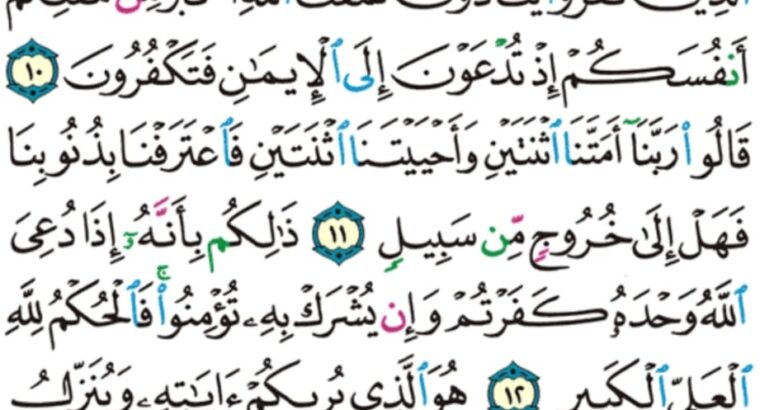 ٱلَّذِينَ كَفَرُوا۟ يُنَادَوْنَ لَمَقْتُ ٱللَّهِ أَكْبَرُ مِن مَّقْتِكُمْ
أَنفُسَكُمْ إِذْ تُدْعَوْنَ إِلَى ٱلْإِيمَٰنِ فَتَكْفُرُونَ ١٠
قَالُوا۟ رَبَّنَآ أَمَتَّنَا ٱثْنَتَيْنِ وَأَحْيَيْتَنَا ٱثْنَتَيْنِ فَٱعْتَرَفْنَا بِذُنُوبِنَا
فَهَلْ إِلَىٰ خُرُوجٍ مِّن سَبِيلٍ ١١ ذَٰلِكُم بِأَنَّهُۥٓ إِذَا دُعِىَ
ٱللَّهُ وَحْدَهُۥ كَفَرْتُمْ وَإِن يُشْرَكْ بِهِۦ تُؤْمِنُوا۟ۚ فَٱلْحُكْمُ لِلَّهِ
ٱلْعَلِىِّ ٱلْكَبِيرِ ١٢ هُوَ ٱلَّذِى يُرِيكُمْ ءَايَٰتِهِۦ وَيُنَزِّلُ